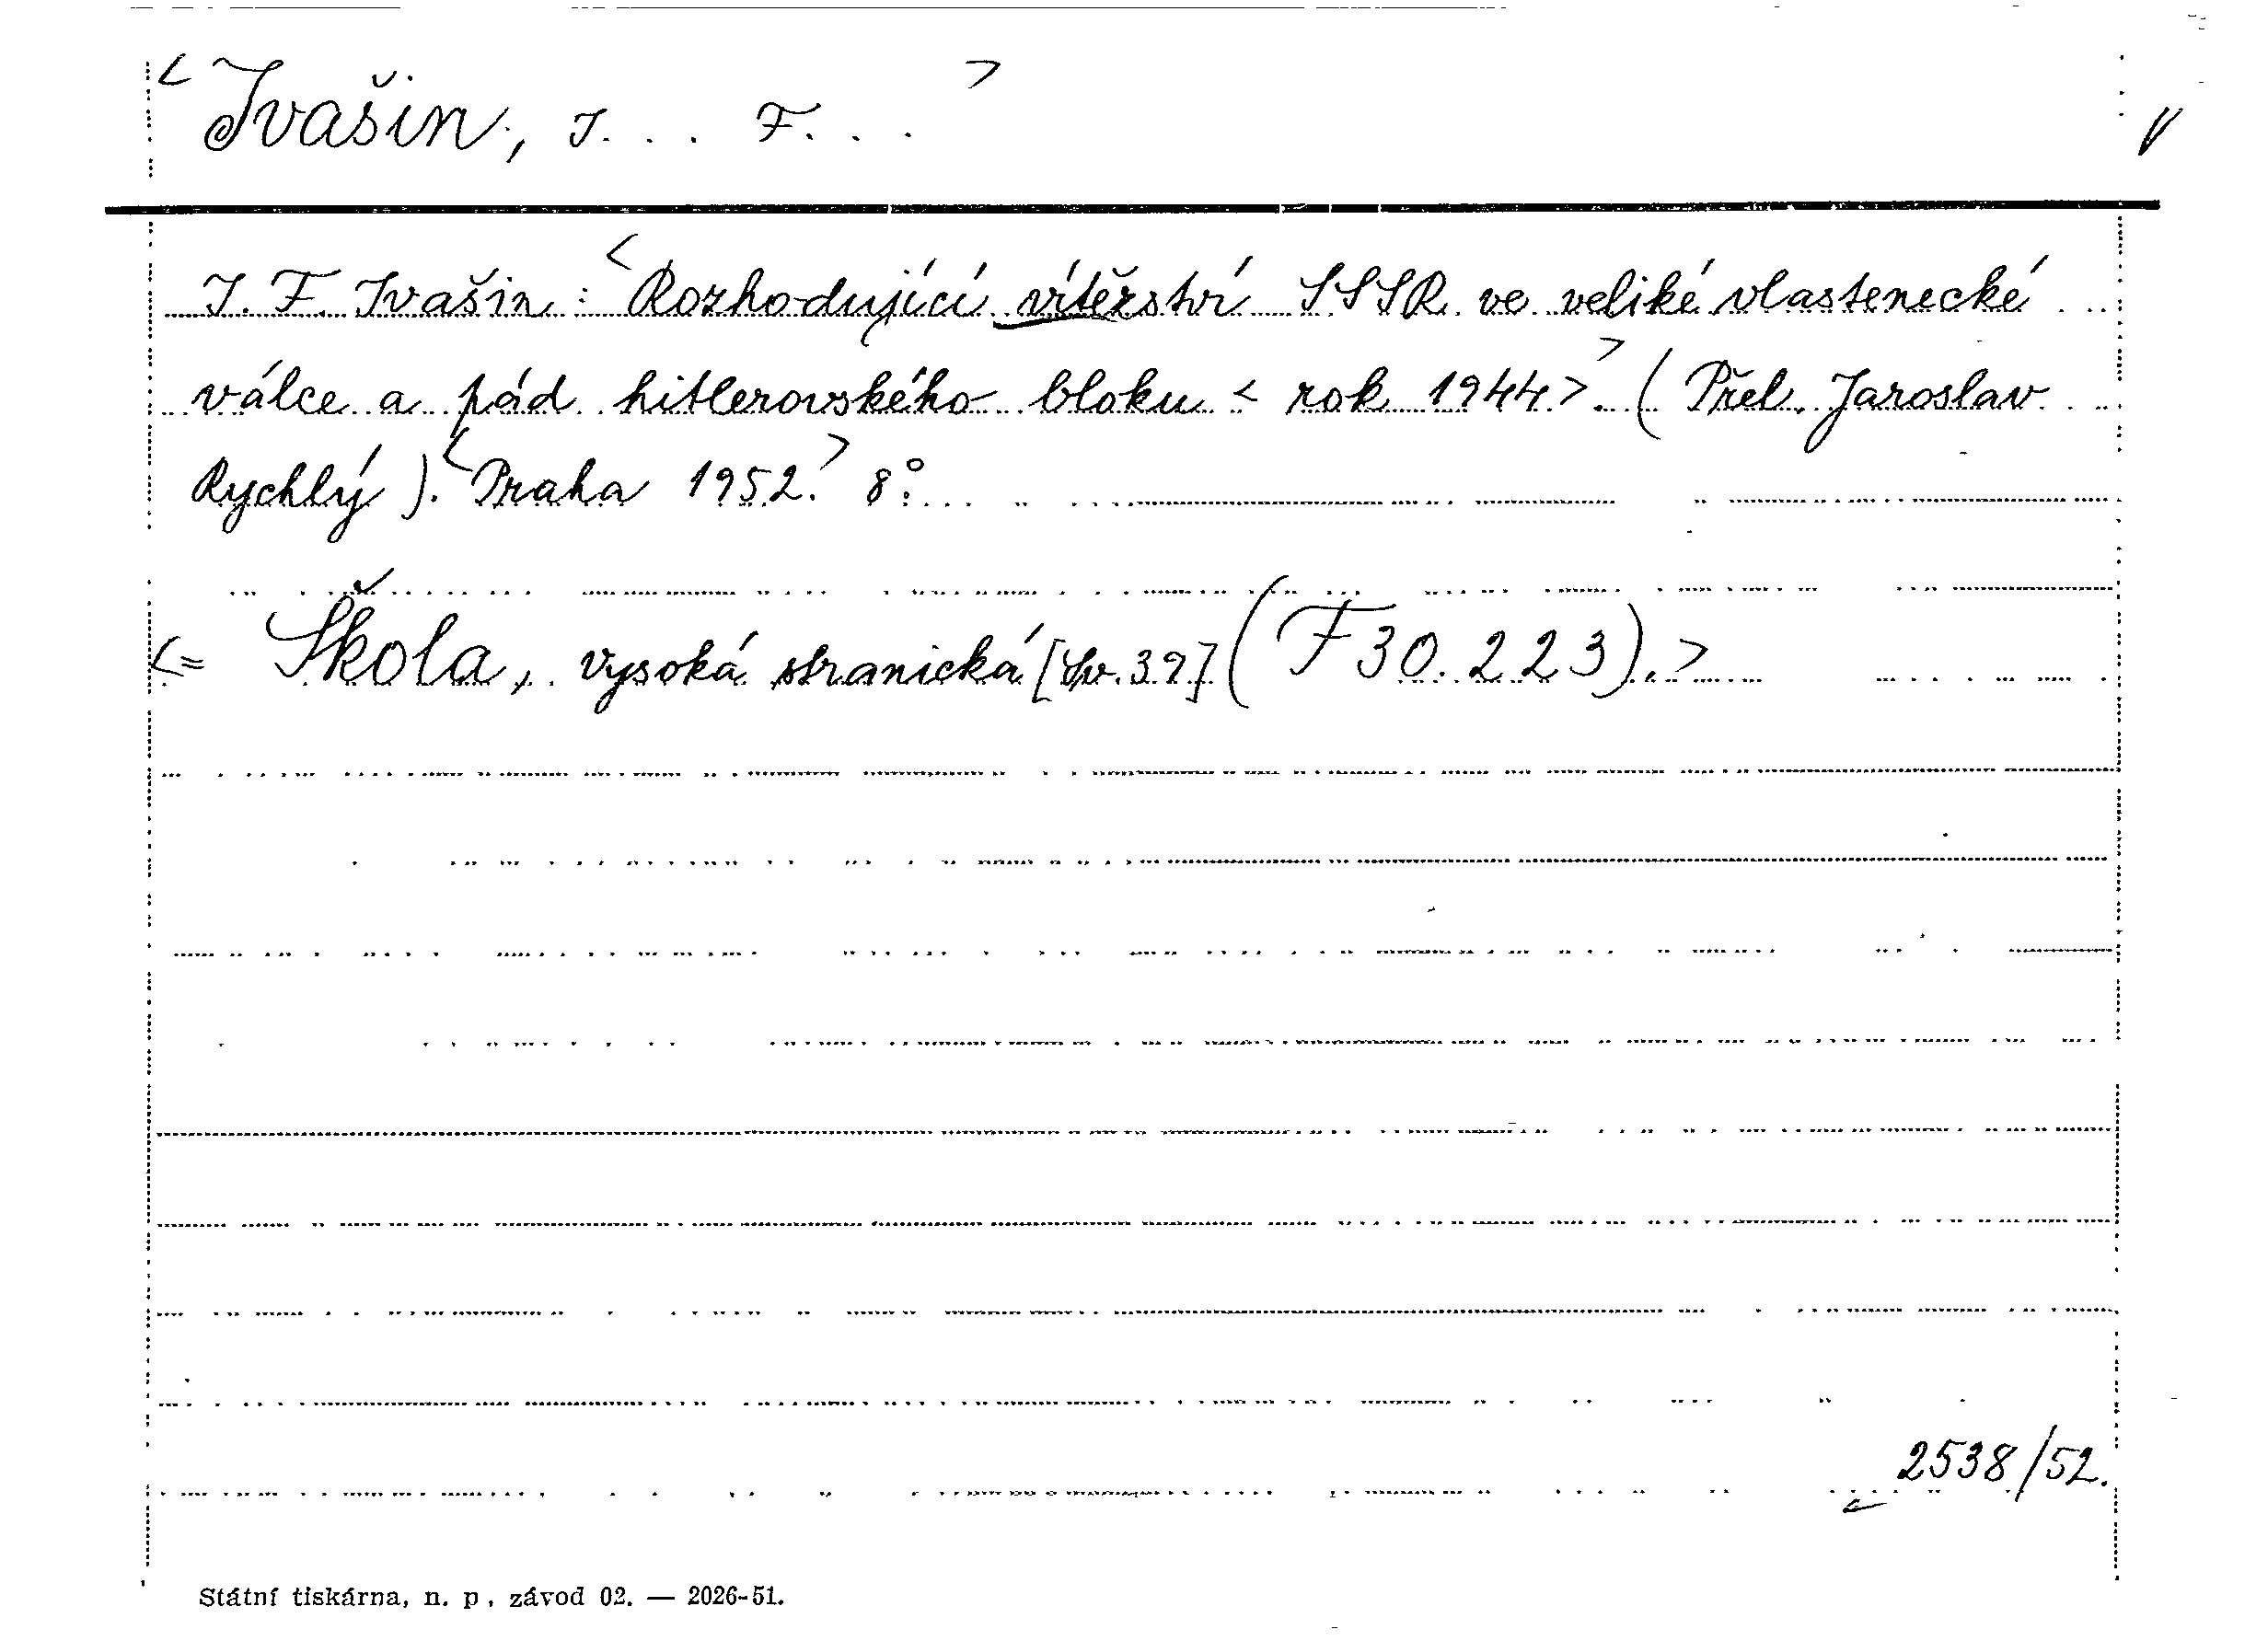 <Ivašin, I... F...>
I. F. Ivašin: <Rozhodující vítězství SSSR ve veliké vlastenecké
válce a pád hitlerovského bloku < rok 1944>.> (Přel. Jaroslav
Rychlý). <Praha 1952.> 8°.
<= Škola, vysoká stranická [Sv. 39] (F 30.223).>
2538/52.
Státní tiskárna, n. p., závod 02. — 2026-51.